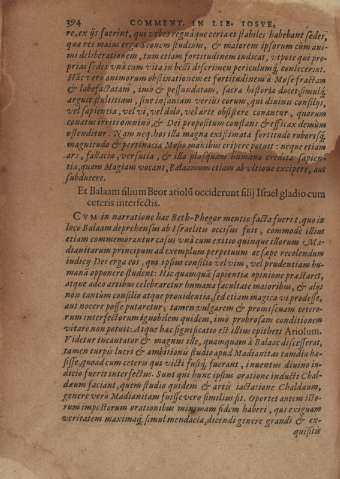 394 COMMENT. IN LIB. IOSVE,
re, ex ijs fuerint, qui vrbes regnáque certa et stabiles habebant sedes,
qua rei maius ergà eorum studium, & maiorem ipsorum cum ani-
mi deliberationem, tum etiam fortitudinem indicat, vtpote qui pro-
prias sedes vnà cum vita in belli discrimen periculumq; coniecerint.
Hâc verò animorum obstinationem et fortitudinem à Mose fractam
& labefactatam, imò & pessundatam, sacra historia docet: simulq;
arguit stultitiam, siue insaniam verius eorum, qui diuinis consilijs,
vel sapientia, vel vi, vel dolo, vel arte obsistere conantur, quorum
conatus irritos omninò, & Dei propositum constans & efficax demùm
ostenditur. Nam neq; hos illa magna existimata fortitudo roburísq;
magnitudo & pertinacia Moseo manibus eripere potuit: neque etiam
ars, fallacia, versutia, & illa plusquam humana credita sapien-
tia, quam Magiam vocant, Balaamum etiam ab vltione excipere, aut
subducere.
Et Balaam filium Beor ariolũ occiderunt filij Israel gladio cum
ceteris interfectis.
CVM in narratione hac Beth-Phegor mentio facta fuerit, quo in
loco Balaam deprehensus ab Israelitis occisus fuit, commodè illius
etiam commemorantur casus vnà cum exitio quinque illorum Ma-
dianitarum principum ad exemplum perpetuum ac sæpe recolendum
iudicij Dei erga eos, qui ipsius consilio vel vim, vel prudentiam hu-
manã opponere student: Hic quamquã sapientiæ opinione præstaret,
atque adeo artibus celebraretur humana facultate maioribus, & alijs
non tantùm consilio atque prouidentia, sed etiam magica vi prodesse,
aut nocere posse putaretur; tamen vulgarem & promiscuam cetero-
rum interfectorum ignobilem quidem, imo probrosam conditionem
vitare non potuit. Atque hæc significatio est illius epitheti Ariolum.
Videtur incautatur & magnus ille, quamquam à Balaac discesserat,
tamen turpis lucri & ambitionis studio apud Madianitas tandiu hæ-
sisse, quoad cum ceteris qui victi fusiq; fuerant, inuentus diuino in-
dicio fuerit interfectus. Sunt qui hunc ipsius oratione inducti Chal-
dæum faciant, quem studio quidem & artis iactatione Chaldæum,
genere verò Madianitam fuisse vero similius sit. Oportet autem isto-
rum impostorum orationibus minimam fidem haberi, qui exiguam
veritatem maximaq; simul mendacia, dicendi genere grandi & ex-
quisitis